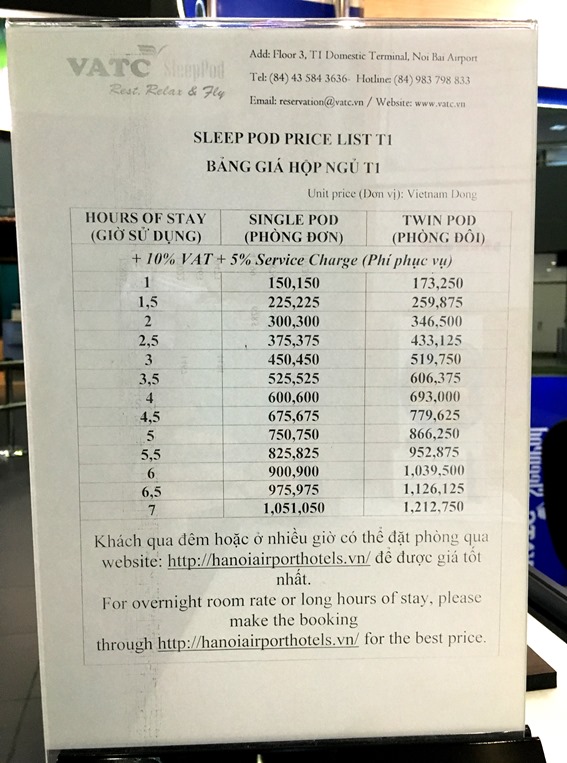 VATC SleepPod
Rest, Relax & Fly
Add: Floor 3, T1 Domestic Terminal, Noi Bai Airport
Tel: (84) 43 584 3636- Hotline: (84) 983 798 833
Email: reservation@vatc.vn / Website: www.vatc.vn
SLEEP POD PRICE LIST T1
BẢNG GIÁ HỘP NGỦ T1
Unit price (Đơn vị): Vietnam Dong
HOURS OF STAY SINGLE POD TWIN POD
(GIỜ SỬ DỤNG) (PHÒNG ĐƠN) (PHÒNG ĐÔI)
+ 10% VAT + 5% Service Charge (Phí phục vụ)
1 150,150 173,250
1,5 225,225 259,875
2 300,300 346,500
2,5 375,375 433,125
3 450,450 519,750
3,5 525,525 606,375
4 600,600 693,000
4,5 675,675 779,625
5 750,750 866,250
5,5 825,825 952,875
6 900,900 1,039,500
6,5 975,975 1,126,125
7 1,051,050 1,212,750
Khách qua đêm hoặc ở nhiều giờ có thể đặt phòng qua
website: http://hanoiairporthotels.vn/ để được giá tốt
nhất.
For overnight room rate or long hours of stay, please
make the booking
through http://hanoiairporthotels.vn/ for the best price.